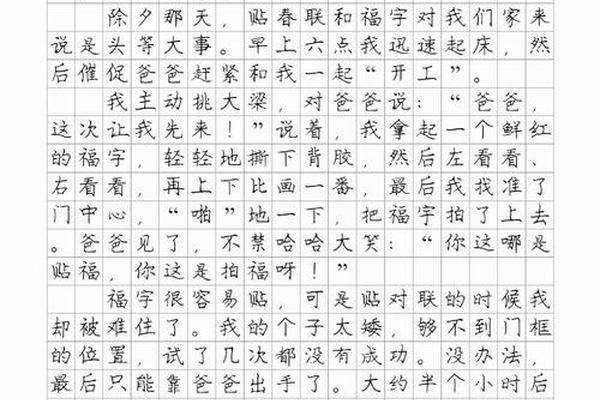 除夕那天，贴春联和福字对我们家来
说是头等大事。早上六点我迅速起床，然
后催促爸爸赶紧和我一起“开工”。
我主动挑大梁，对爸爸说：“爸爸，
这次让我先来！”说着，我拿起一个鲜红
的福字，轻轻地撕下背胶，然后左看看、
右看看，再上下比画一番，最后我找准了
门中心，“啪”地一下，把福字拍了上去
。爸爸见了，不禁哈哈大笑：“你这哪是
贴福，你这是拍福呀！”
福字很容易贴，可是贴对联的时候我
却被难住了。我的个子太矮，够不到门框
的位置，试了几次都没有成功。没办法，
最后只能靠爸爸出手了。大约半个小时后